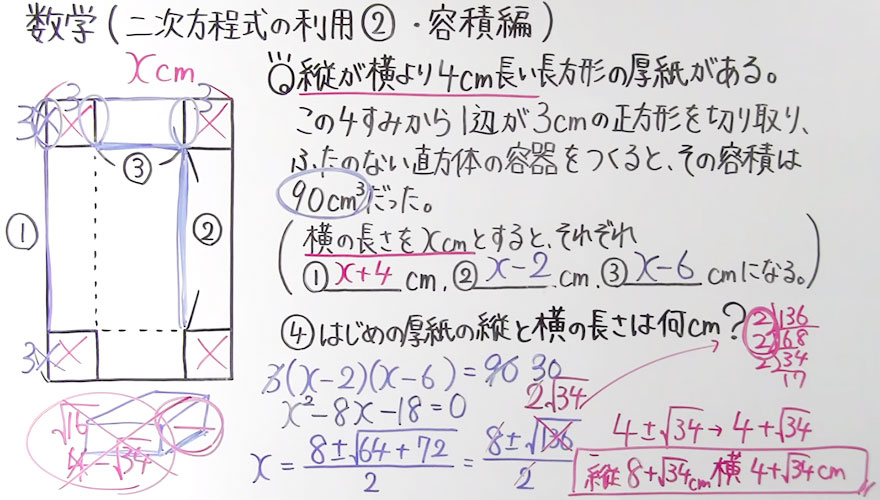 数学(二次方程式の利用②・容積編)
xcm
3 3
3 ③ ② ①
3
Q 縦が横より4cm長い長方形の厚紙がある。
この4すみから1辺が3cmの正方形を切り取り、
ふたのない直方体の容器をつくると、その容積は
90cm³だった。
(横の長さをxcmとすると、それぞれ
①x+4cm, ②x-2cm, ③x-6cmになる。)
④はじめの厚紙の縦と横の長さは何cm?
3(x-2)(x-6)=90 30
x²-8x-18=0
x=8±√64+72/2=8±√136/2
2√34
2 136
2 68
2 34
17
4±√34→4+√34
縦8+√34cm 横4+√34cm
√16
4-√34